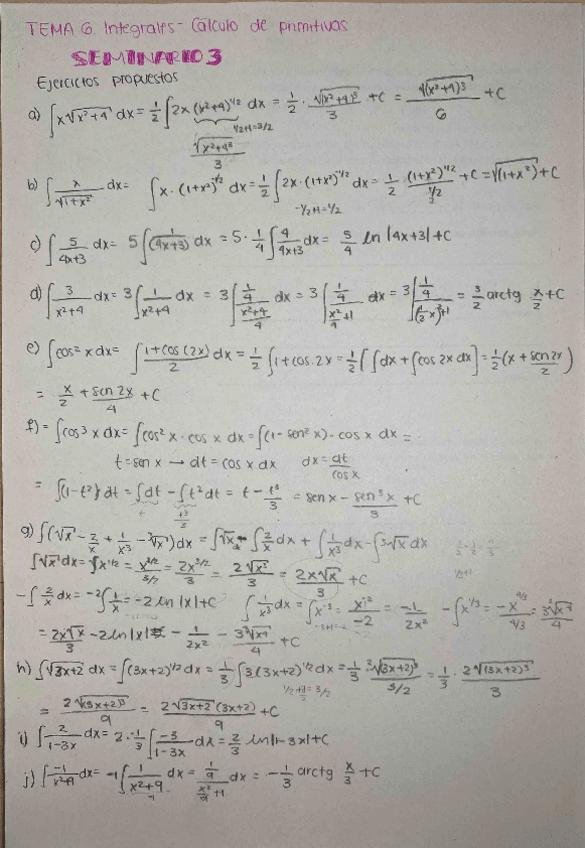 TEMA 6. Integrales - Cálculo de primitivas
SEMINARIO 3
Ejercicios propuestos
a) ∫x√(x²+4) dx = 1/2 ∫2x (x²+4)^(1/2) dx = 1/2 · √(x²+4)³/3 + C = √(x²+4)³/6 + C
1/2+1=3/2
√(x²+4)³/3
b) ∫ x/√(1+x²) dx = ∫x·(1+x²)^(-1/2) dx = 1/2 ∫2x·(1+x²)^(-1/2) dx = 1/2 · (1+x²)^(1/2)/(1/2) + C = √(1+x²) + C
-1/2+1=1/2
c) ∫ 5/(4x+3) dx = 5∫ 1/(4x+3) dx = 5·1/4 ∫ 4/(4x+3) dx = 5/4 ln |4x+3| + C
d) ∫ 3/(x²+4) dx = 3∫ 1/(x²+4) dx = 3∫ (1/4)/((x²+4)/4) dx = 3∫ (1/4)/(x²/4+1) dx = 3∫ (1/4)/((1/2 x)²+1) = 3/2 arctg x/2 + C
e) ∫cos² x dx = ∫ (1+cos(2x))/2 dx = 1/2 ∫1+cos.2x = 1/2 (∫dx + ∫cos 2x dx) = 1/2 (x + sen2x/2)
= x/2 + sen 2x/4 + C
f) = ∫cos³ x dx = ∫cos² x · cos x dx = ∫(1-sen² x)· cos x dx =
t = sen x → dt = cos x dx dx = dt/cos x
= ∫(1-t²) dt = ∫dt - ∫t² dt = t - t³/3 = sen x - sen³ x/3 + C
g) ∫(√x - 2/x + 1/x³ - ³√x) dx = ∫√x dx - ∫2/x dx + ∫1/x³ dx - ∫³√x dx
∫√x dx = ∫x^(1/2) = x^(3/2)/(3/2) = 2x^(3/2)/3 = 2√x³/3 = 2x√x/3 + C
-∫2/x dx = -2∫1/x = -2 ln |x| + C ∫1/x³ dx = ∫x⁻³ = x⁻²/-2 = -1/2x² -∫x^(1/3) = -x^(4/3)/(4/3) = 3³√x⁴/4
= 2x√x/3 - 2 ln |x| - 1/2x² - 3³√x⁴/4 + C
h) ∫√(3x+2) dx = ∫(3x+2)^(1/2) dx = 1/3 ∫3(3x+2)^(1/2) dx = 1/3 · √(3x+2)³/(3/2) = 1/3 · 2√(3x+2)³/3
1/2+1=3/2
= 2√(3x+2)³/9 = 2√(3x+2) (3x+2)/9 + C
i) ∫ 2/(1-3x) dx = 2·-1/3 ∫ -3/(1-3x) dx = 2/3 ln|1-3x| + C
j) ∫ -1/(x²+9) dx = -1∫ 1/(x²+9) dx = (1/9)/(x²/9+1) dx = -1/3 arctg x/3 + C